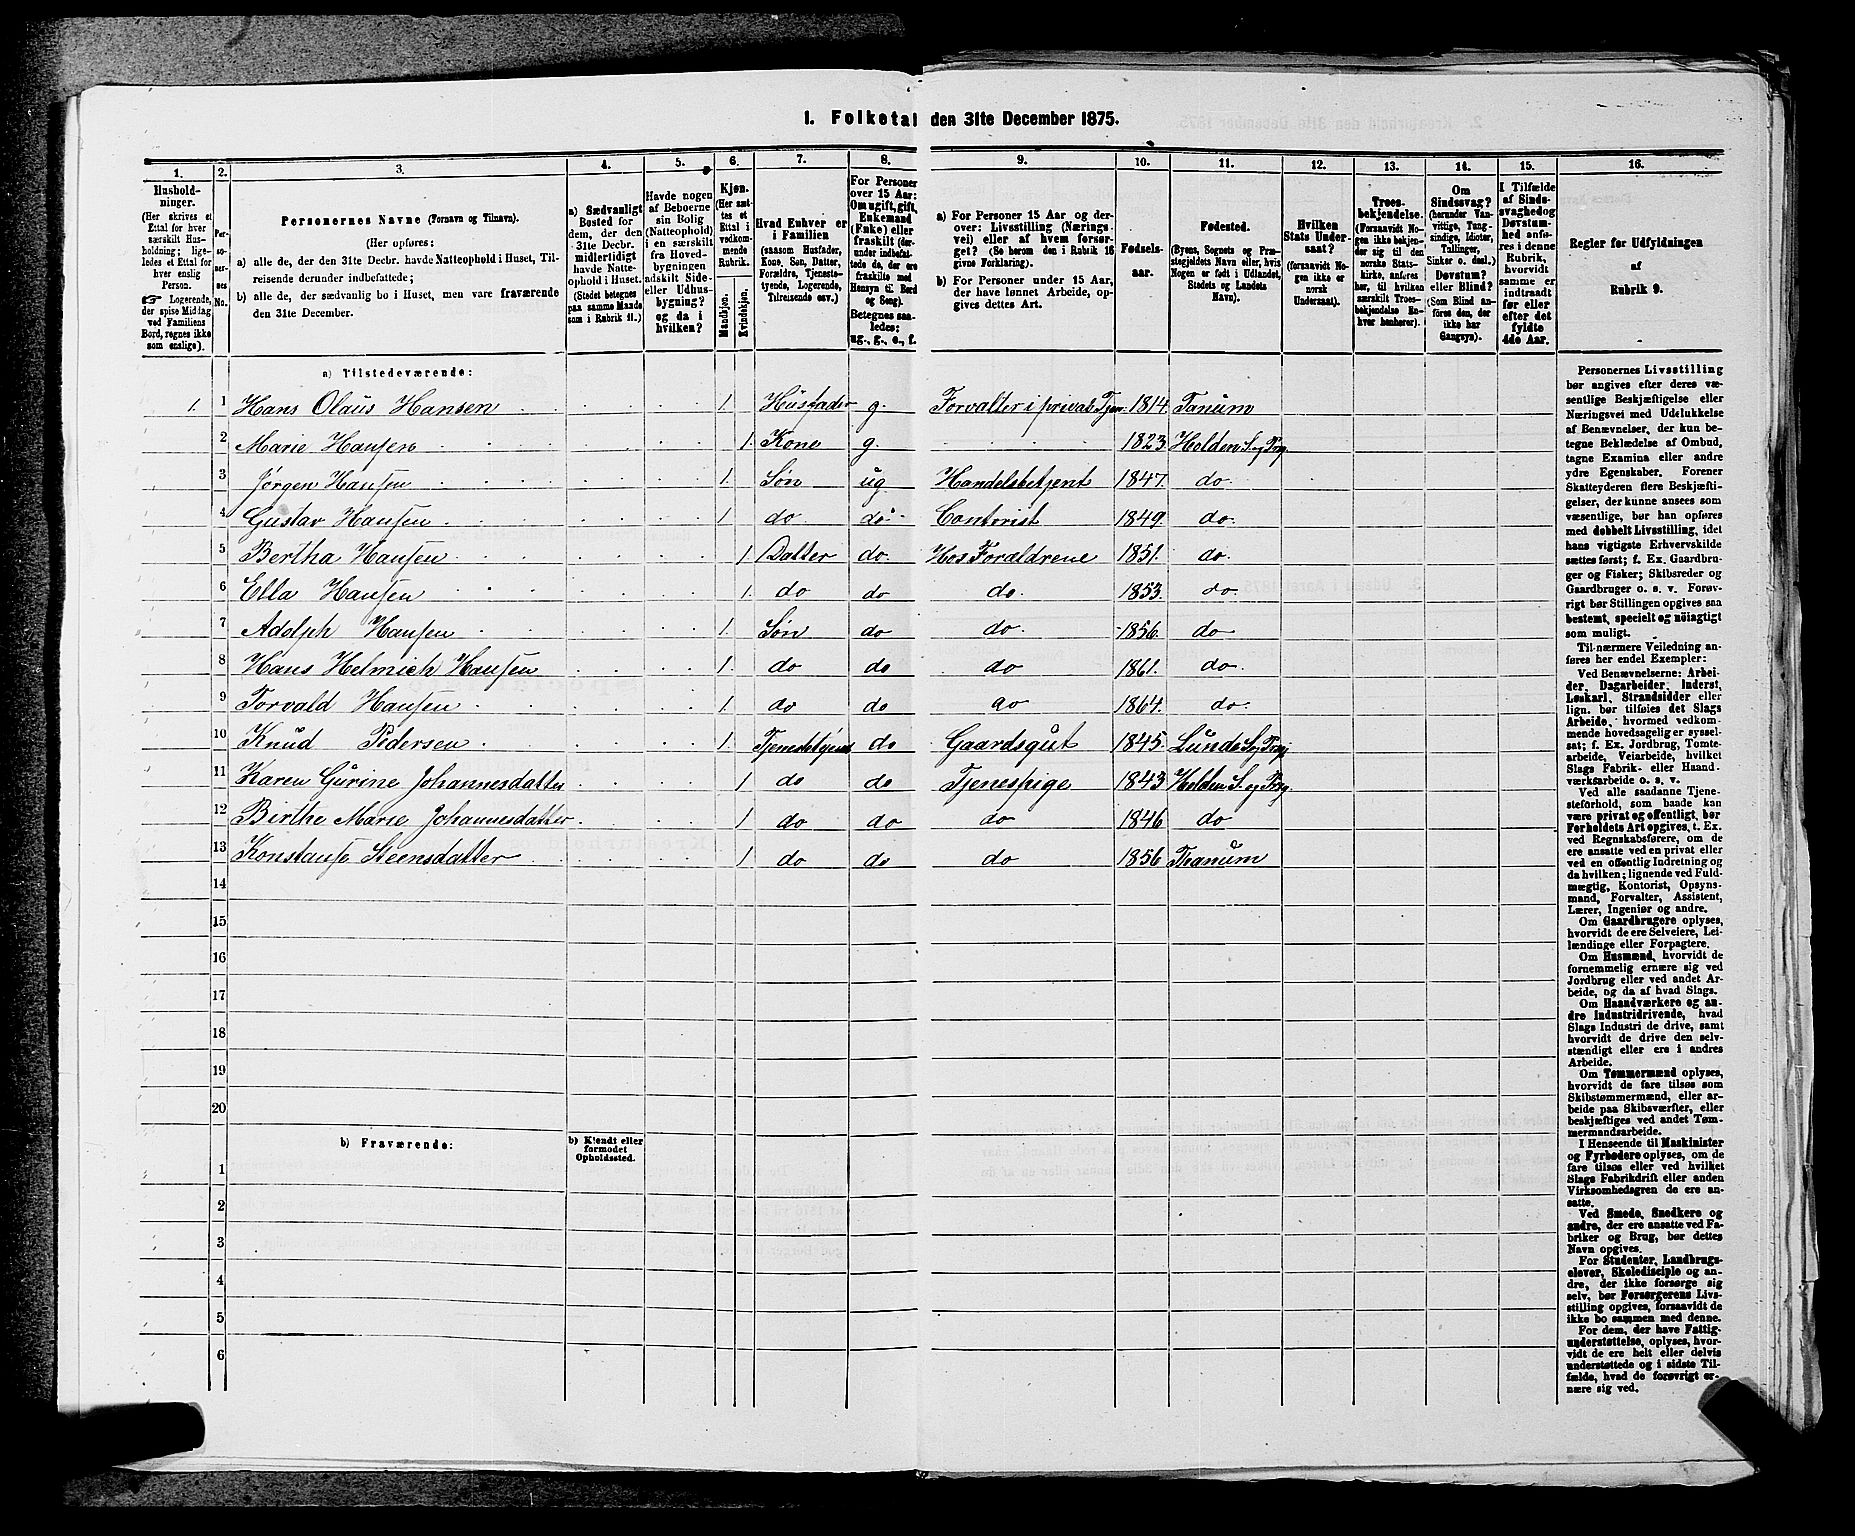 1. Folketal den 31te December 1875.
1. 2. 3. 4. 5. 6. 7. 8. 9. 10. 11. 12. 13. 14. 15. 16.
Hushold-
ninger.
(Her skrives et
Ettal for hver
særskilt Hus-
holdning; lige-
ledes et Ettal for
hver enslig
Person.
☞ Logerende,
der spise Middag
ved Familiens
Bord, regnes ikke
som enslige).
Per-
so-
ner-
nes
No.
Personernes Navne (Fornavn og Tilnavn).
(Her opføres:
a) alle de, der den 31te Decbr. havde Natteophold i Huset, Til-
reisende derunder indbefattede;
b) alle de, der sædvanlig bo i Huset, men vare fraværende
den 31te December.
a) Sædvanligt
Bosted for
dem, der den
31te Decbr.
midlertidigt
havde Natte-
ophold i Huset.
(Stedet betegnes
paa samme Maade
som i Rubrik 11.)
Havde nogen
af Beboerne
sin Bolig
(Natteophold)
i en særskilt
fra Hoved-
bygningen
adskilt Side-
eller Udhus-
bygning?
og da i
hvilken?
Kjøn.
(Her sæt-
tes et
Ettal i
vedkom-
mende
Rubrik.
Mandkjøn.
Kvindekjøn.
Hvad Enhver er
i Familien
(saasom Husfader,
Kone, Søn, Datter,
Forældre, Tjeneste-
tyende, Logerende,
Tilreisende osv.)
For Personer
over 15 Aar:
Om ugift, gift,
Enkemand
(Enke) eller
fraskilt (der-
under indbefat-
tede de, der ere
fraskilte med
Hensyn til Bord
og Seng).
Betegnes saa-
ledes:
ug., g., e., f.
a) For Personer 15 Aar og der-
over: Livsstilling (Nærings-
vei) eller af hvem forsør-
get? (Se herom den i Rubrik 16
givne Forklaring).
b) For Personer under 15 Aar,
der have lønnet Arbeide, op-
gives dettes Art.
Fødsels-
aar.
Fødested.
(Byens, Sognets og Præ-
stegjeldets Navn eller, hvis
Nogen er født i Udlandet,
Stedets og Landets
Navn).
Hvilken
Stats Under-
saat?
(forsaavidt No-
gen ikke er
norsk
Undersaat).
Troes-
bekjendelse.
(Forsaavidt No-
gen ikke bekjen-
der sig til den
norske Stats-
kirke, anføres
her, til hvilken
særskilt Troes-
bekjendelse En-
hver henhører).
Om
Sindssvag?
(herunder Van-
vittige, Tung-
sindige, Idioter,
Tullinger,
Sinker o. desl.)
Døvstum?
eller Blind?
(Som Blind an-
føres den, der
ikke har
Gangsyn).
I Tilfælde
af Sinds-
svaghed og
Døvstum-
hed anfø-
res i denne
Rubrik,
hvorvidt
samme er
indtraadt
før eller
efter det
fyldte
4de Aar.
Regler for Udfyldningen
af
Rubrik 9.
a) Tilstedeværende:
1. 1 Hans Olaus Hansen 1. Husfader g. Forvalter i privat Tjen. 1814. Tanum
2 Marie Hansen 1. Kone g. 1823 Holden S. og Prg.
3 Jørgen Hansen 1. Søn ug Handelsbetjent 1847. do.
4 Gustav Hansen 1 do do Contorist 1849. do.
5 Bertha Hansen 1 Datter do. Hos Forældrene 1851. do.
6 Ella Hansen 1. do do do. 1853. do.
7 Adolph Hansen 1. Søn do do. 1856. do
8 Hans Helmich Hansen 1. do do do 1861. do.
9 Torvald Hansen 1. do do do 1864. do.
10 Knud Pedersen 1. Tjenestetyende do Gaardsgut 1845. Lunde S. og Prgj
11 Karen Gurine Johannesdatter 1 do do Tjenespige 1843 Holden S. og Prg.
12 Birthe Marie Johannesdatter 1 do do do 1846 do
13 Konstanse Steensdatter 1 do do do 1856 Thanum
14
15
16
17
18
19
20
b) Fraværende:
b) Kjendt eller
formodet
Opholdssted.
1
2
3
4
5
6
Personernes Livsstilling
bør angives efter deres væ-
sentlige Beskjæftigelse eller
Næringsvei med Udelukkelse
af Benævnelser, der kun be-
tegne Beklædelse af Ombud,
tagne Examina eller andre
ydre Egenskaber. Forener
Skatteyderen flere Beskjæfti-
gelser, der kunne ansees som
væsentlige, bør han opføres
med dobbelt Livsstilling, idet
hans vigtigste Erhvervskilde
sættes først; f. Ex. Gaardbru-
ger og Fisker; Skibsreder og
Gaardbruger o. s. v. Forøv-
rigt bør Stillingen opgives saa
bestemt, specielt og nöiagtigt
som muligt.
Til nærmere Veiledning an-
føres her endel Exempler:
Ved Benævnelserne: Arbei-
der, Dagarbeider, Inderst,
Løskarl, Strandsidder eller
lign. bør tilføies det Slags
Arbeide, hvormed vedkom-
mende hovedsagelig er syssel-
sat; f. Ex. Jordbrug, Tomte-
arbeide, Veiarbeide, hvilket
Slags Fabrik- eller Haand-
værksarbeide o. s. v.
Ved alle saadanne Tjene-
steforhold, som baade kan
være privat og offentligt, bør
Forholdets Art opgives, t. Ex.
ved Regnskabsførere, om de
ere ansatte ved en privat eller
ved en offentlig Indretning og
da hvilken; lignende ved Fuld-
mægtig, Kontorist, Opsyns-
mand, Forvalter, Assistent,
Lærer, Ingeniør og andre.
Om Gaardbrugere oplyses,
hvorvidt de ere Selveiere, Lei-
lændinge eller Forpagtere.
Om Husmænd, hvorvidt de
fornemmelig ernære sig ved
Jordbrug eller ved andet Ar-
beide, og da af hvad Slags.
Om Haandværkere og an-
dre Industridrivende, hvad
Slags Industri de drive, samt
hvorvidt de drive den selv-
stændigt eller ere i andres
Arbeide.
Om Tømmermænd oplyses,
hvorvidt de fare tilsøs som
Skibstømmermænd, eller ar-
beide paa Skibsværfter, eller
beskjæftiges ved andet Tøm-
mermandsarbeide.
I Henseende til Maskinister
og Fyrbødere oplyses, om de
fare tilsøs eller ved hvilket
Slags Fabrikdrift eller anden
Virksomhedsgren de ere an-
satte.
Ved Smede, Snedkere og
andre, der ere ansatte ved Fa-
briker og Brug, bør dettes
Navn opgives.
For Studenter, Landbrugs-
elever, Skoledisciple og an-
dre, der ikke forsørge sig
selv, bør Forsørgerens Livs-
stilling opgives, forsaavidt de
ikke bo sammen med denne.
For dem, der have Fattig-
understøttelse, oplyses, hvor-
vidt de ere helt eller delvis
understøttede og i sidste Til-
fælde, hvad de forøvrigt er-
nære sig ved.